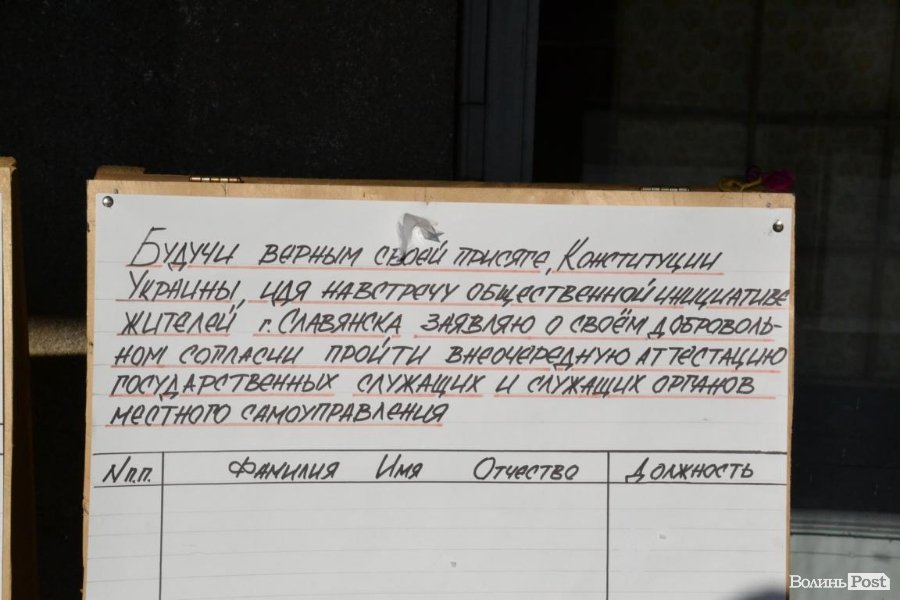 Будучи верным своей присяге, Конституции
Украины, идя навстречу общественной инициативе
жителей г. Славянска заявляю о своём доброволь-
ном согласии пройти внеочередную аттестацию
государственных служащих и служащих органов
местного самоуправления
N п.п. Фамилия Имя Отчество Должность
Волинь Post